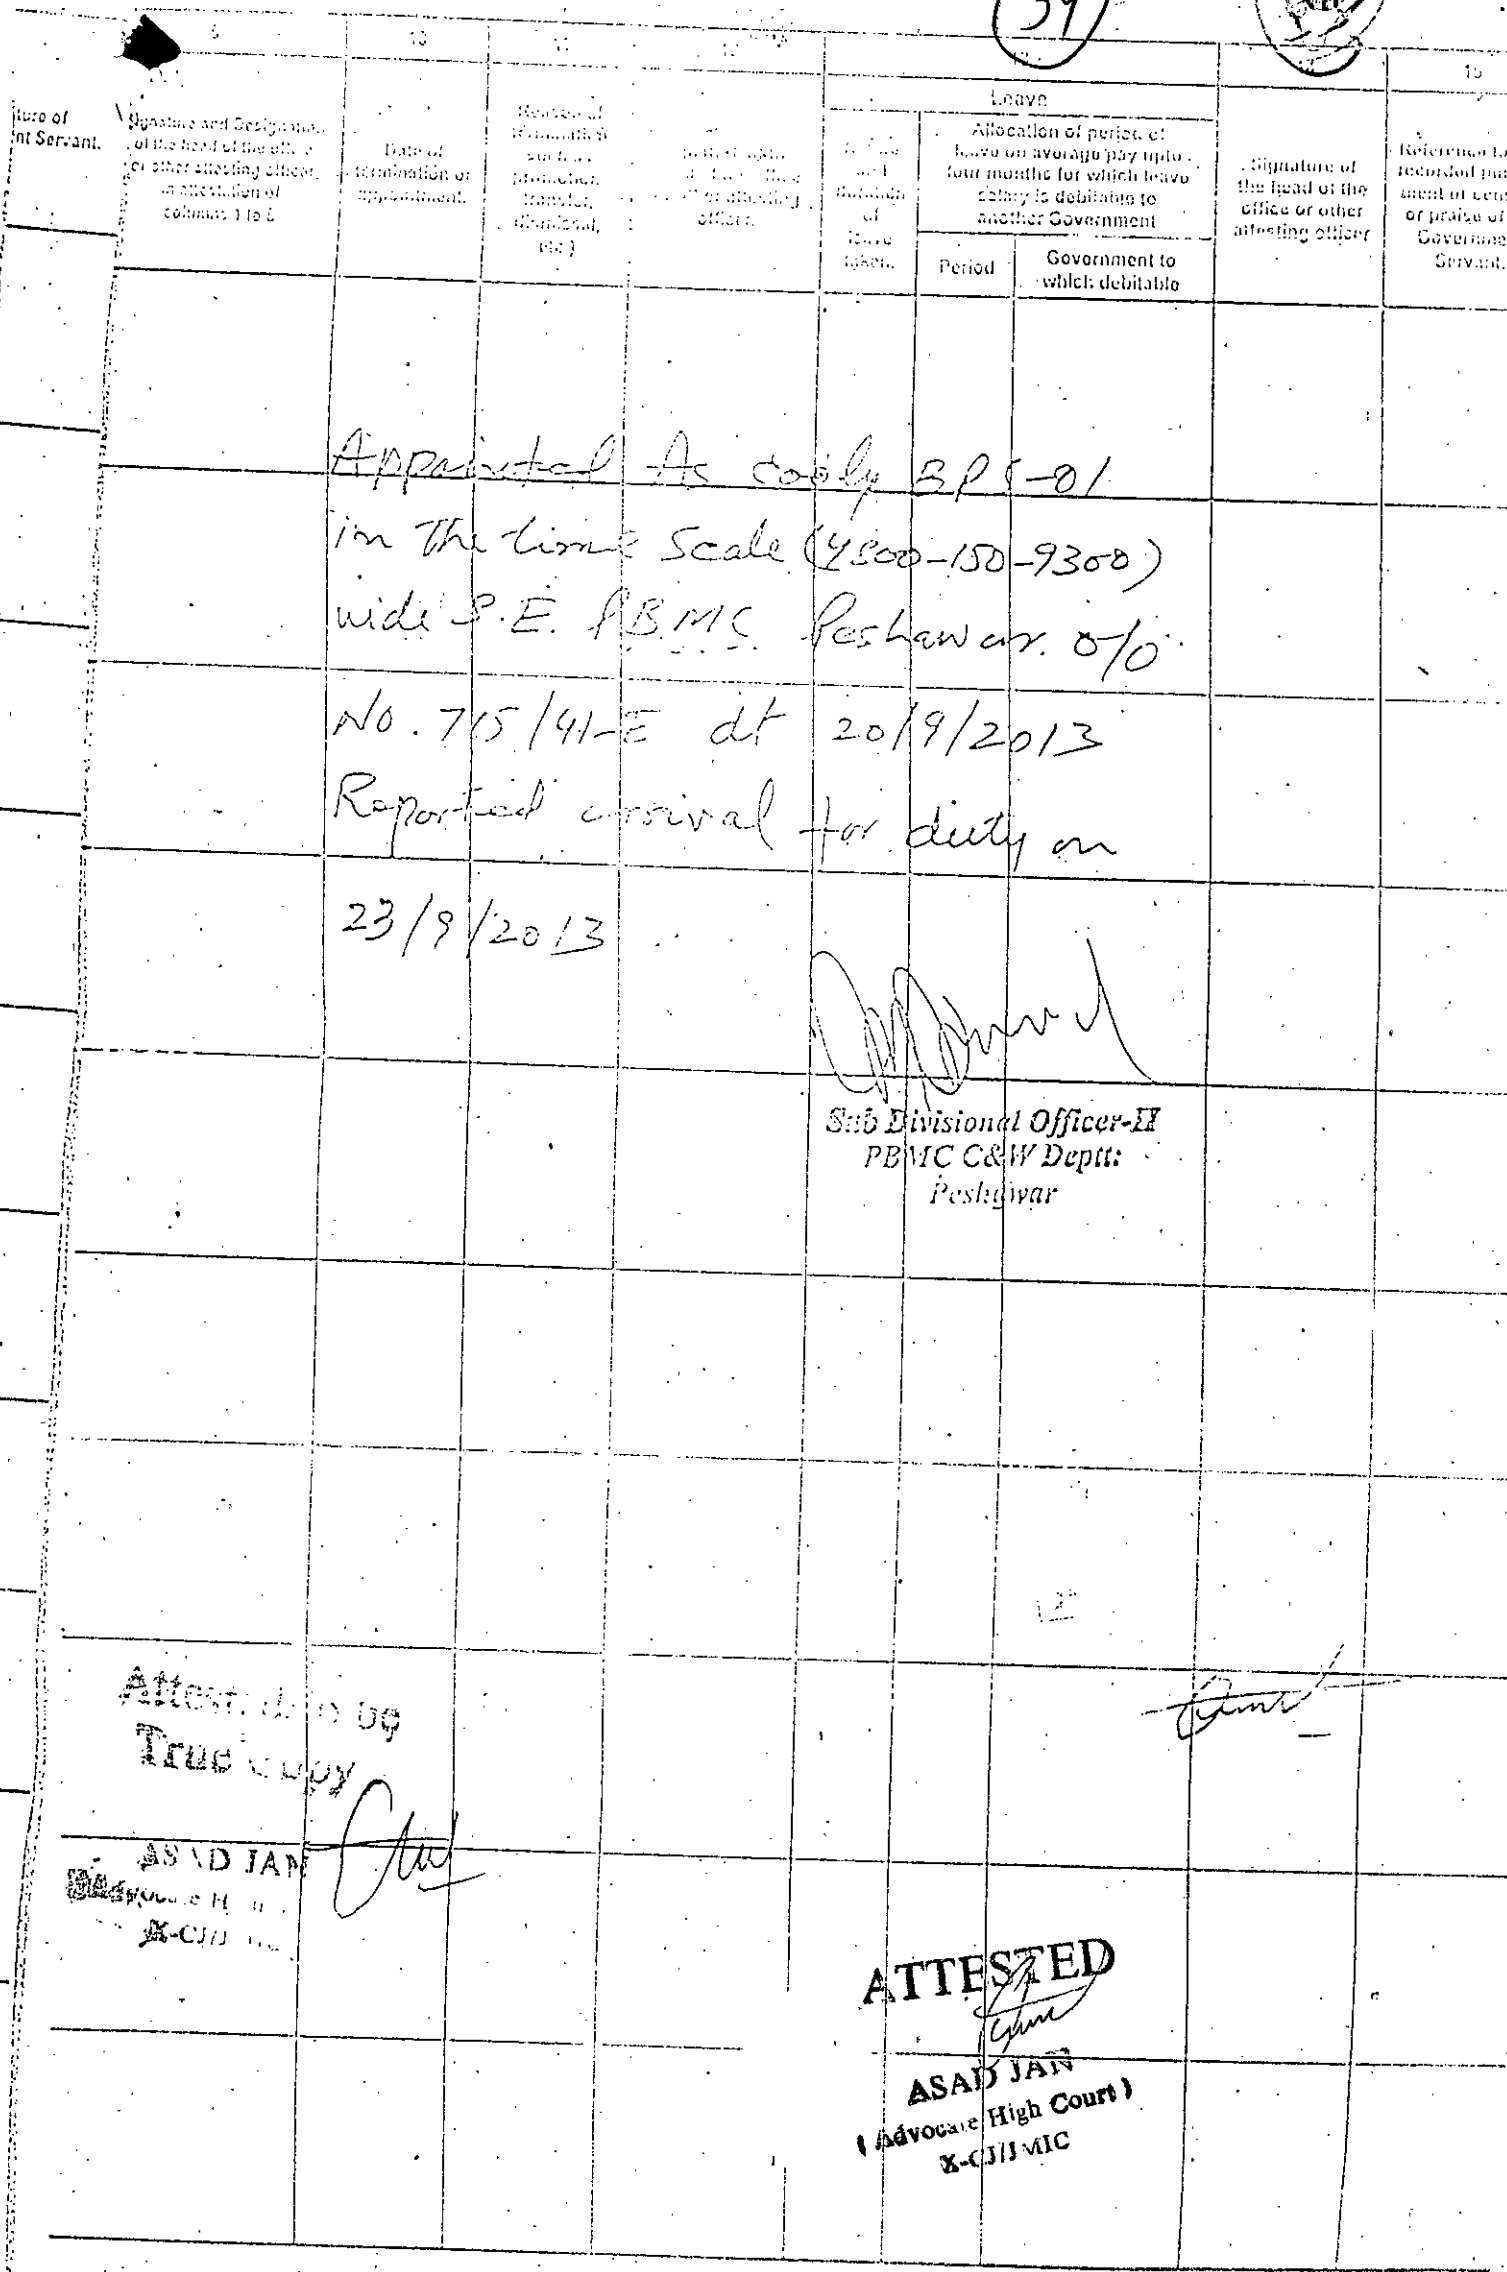 39
10
11
12
15
ture of
nt Servant.
Signature and Designation
of the head of the office
or other attesting officer
in attestation of
columns 1 to 8
Date of
termination or
appointment.
Reason of
termination
such as
promotion,
transfer,
dismissal,
etc)
attesting
officer.
Leave
duration
of
leave
taken.
Allocation of period of
leave on average pay upto
four months for which leave
salary is debitable to
another Government
Period
Government to
which debitable
Signature of
the head of the
office or other
attesting officer
Reference to
recorded
or praise of
Governme
Servant.
Appointed As cooly BPS-01
in The time Scale (4800-150-9300)
wide S.E. PBMC Peshawar. o/o
No. 715/41-E dt 20/9/2013
Reported arrival for duty on
23/9/2013
Sub Divisional Officer-II
PBMC C&W Deptt:
Peshawar
Attested to be
True Copy
ASAD JAN
Advocate H
X-CJ/J
ATTESTED
ASAD JAN
( Advocate High Court )
X-CJ/JMIC